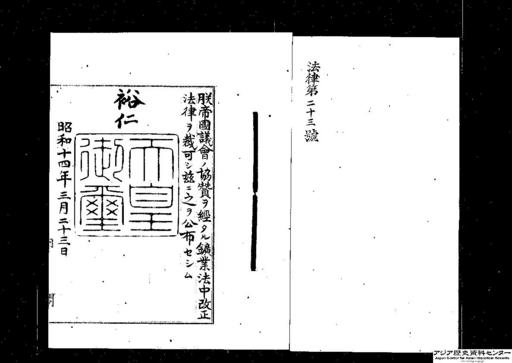 法律第二十三號
朕帝國議會ノ協贊ヲ經タル鑛業法中改正
法律ヲ裁可シ茲ニ之ヲ公布セシム
裕仁
天皇
御璽
昭和十四年三月二十三日
アジア歴史資料センター
Japan Center for Asian Historical Records